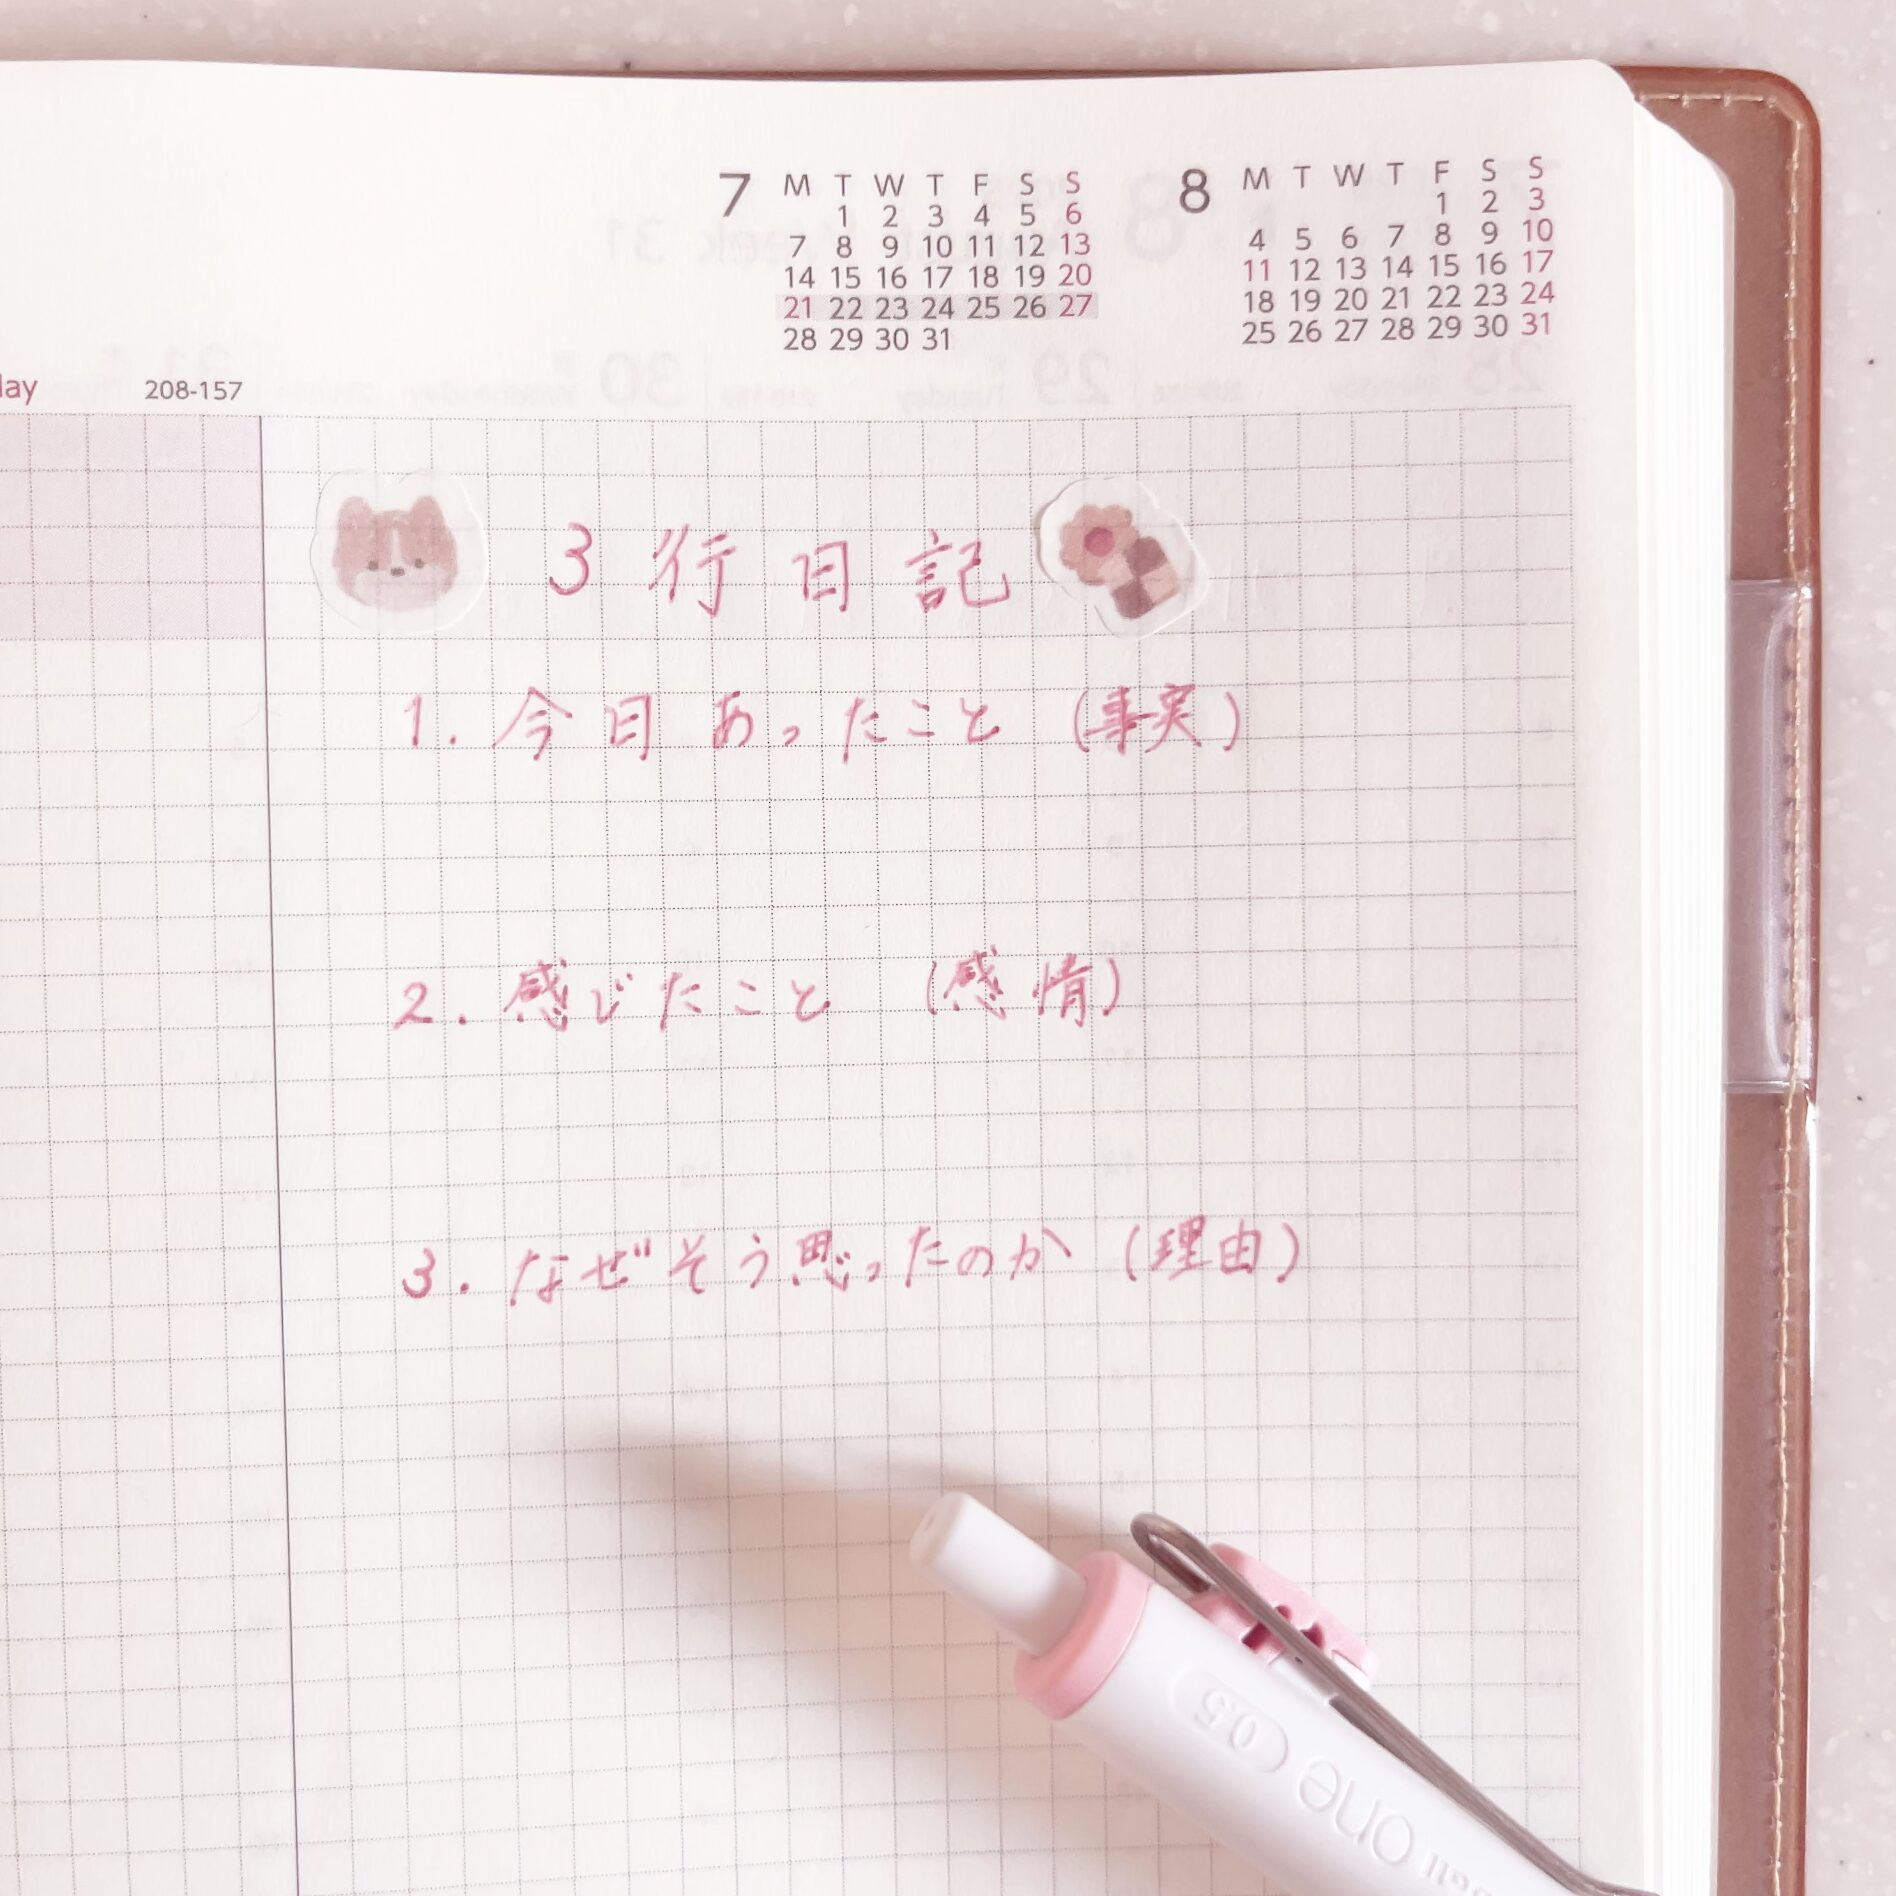 7 M T W T F S S
1 2 3 4 5 6
7 8 9 10 11 12 13
14 15 16 17 18 19 20
21 22 23 24 25 26 27
28 29 30 31
8 M T W T F S S
1 2 3
4 5 6 7 8 9 10
11 12 13 14 15 16 17
18 19 20 21 22 23 24
25 26 27 28 29 30 31
208-157
3行日記
1. 今日あったこと (事実)
2. 感じたこと (感情)
3. なぜそう思ったのか (理由)
one 0.5